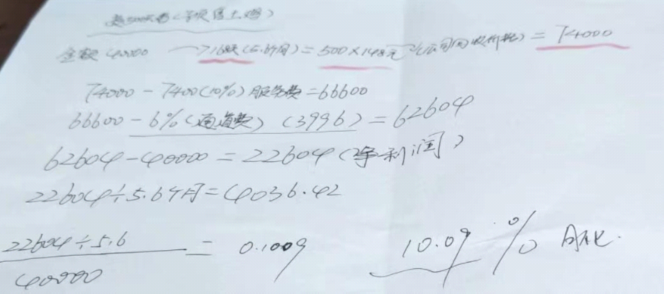 金额 40000 → 16期(5.6个月) = 500×148元 = 74000
74000 - 7400(10%)服务费 = 66600
66600 - 6%(通道费) (3996) = 62604
62604 - 40000 = 22604 (净利润)
22604 ÷ 5.6个月 = 4036.42
22604 ÷ 5.6
40000
= 0.1009 10.09 % 月化.